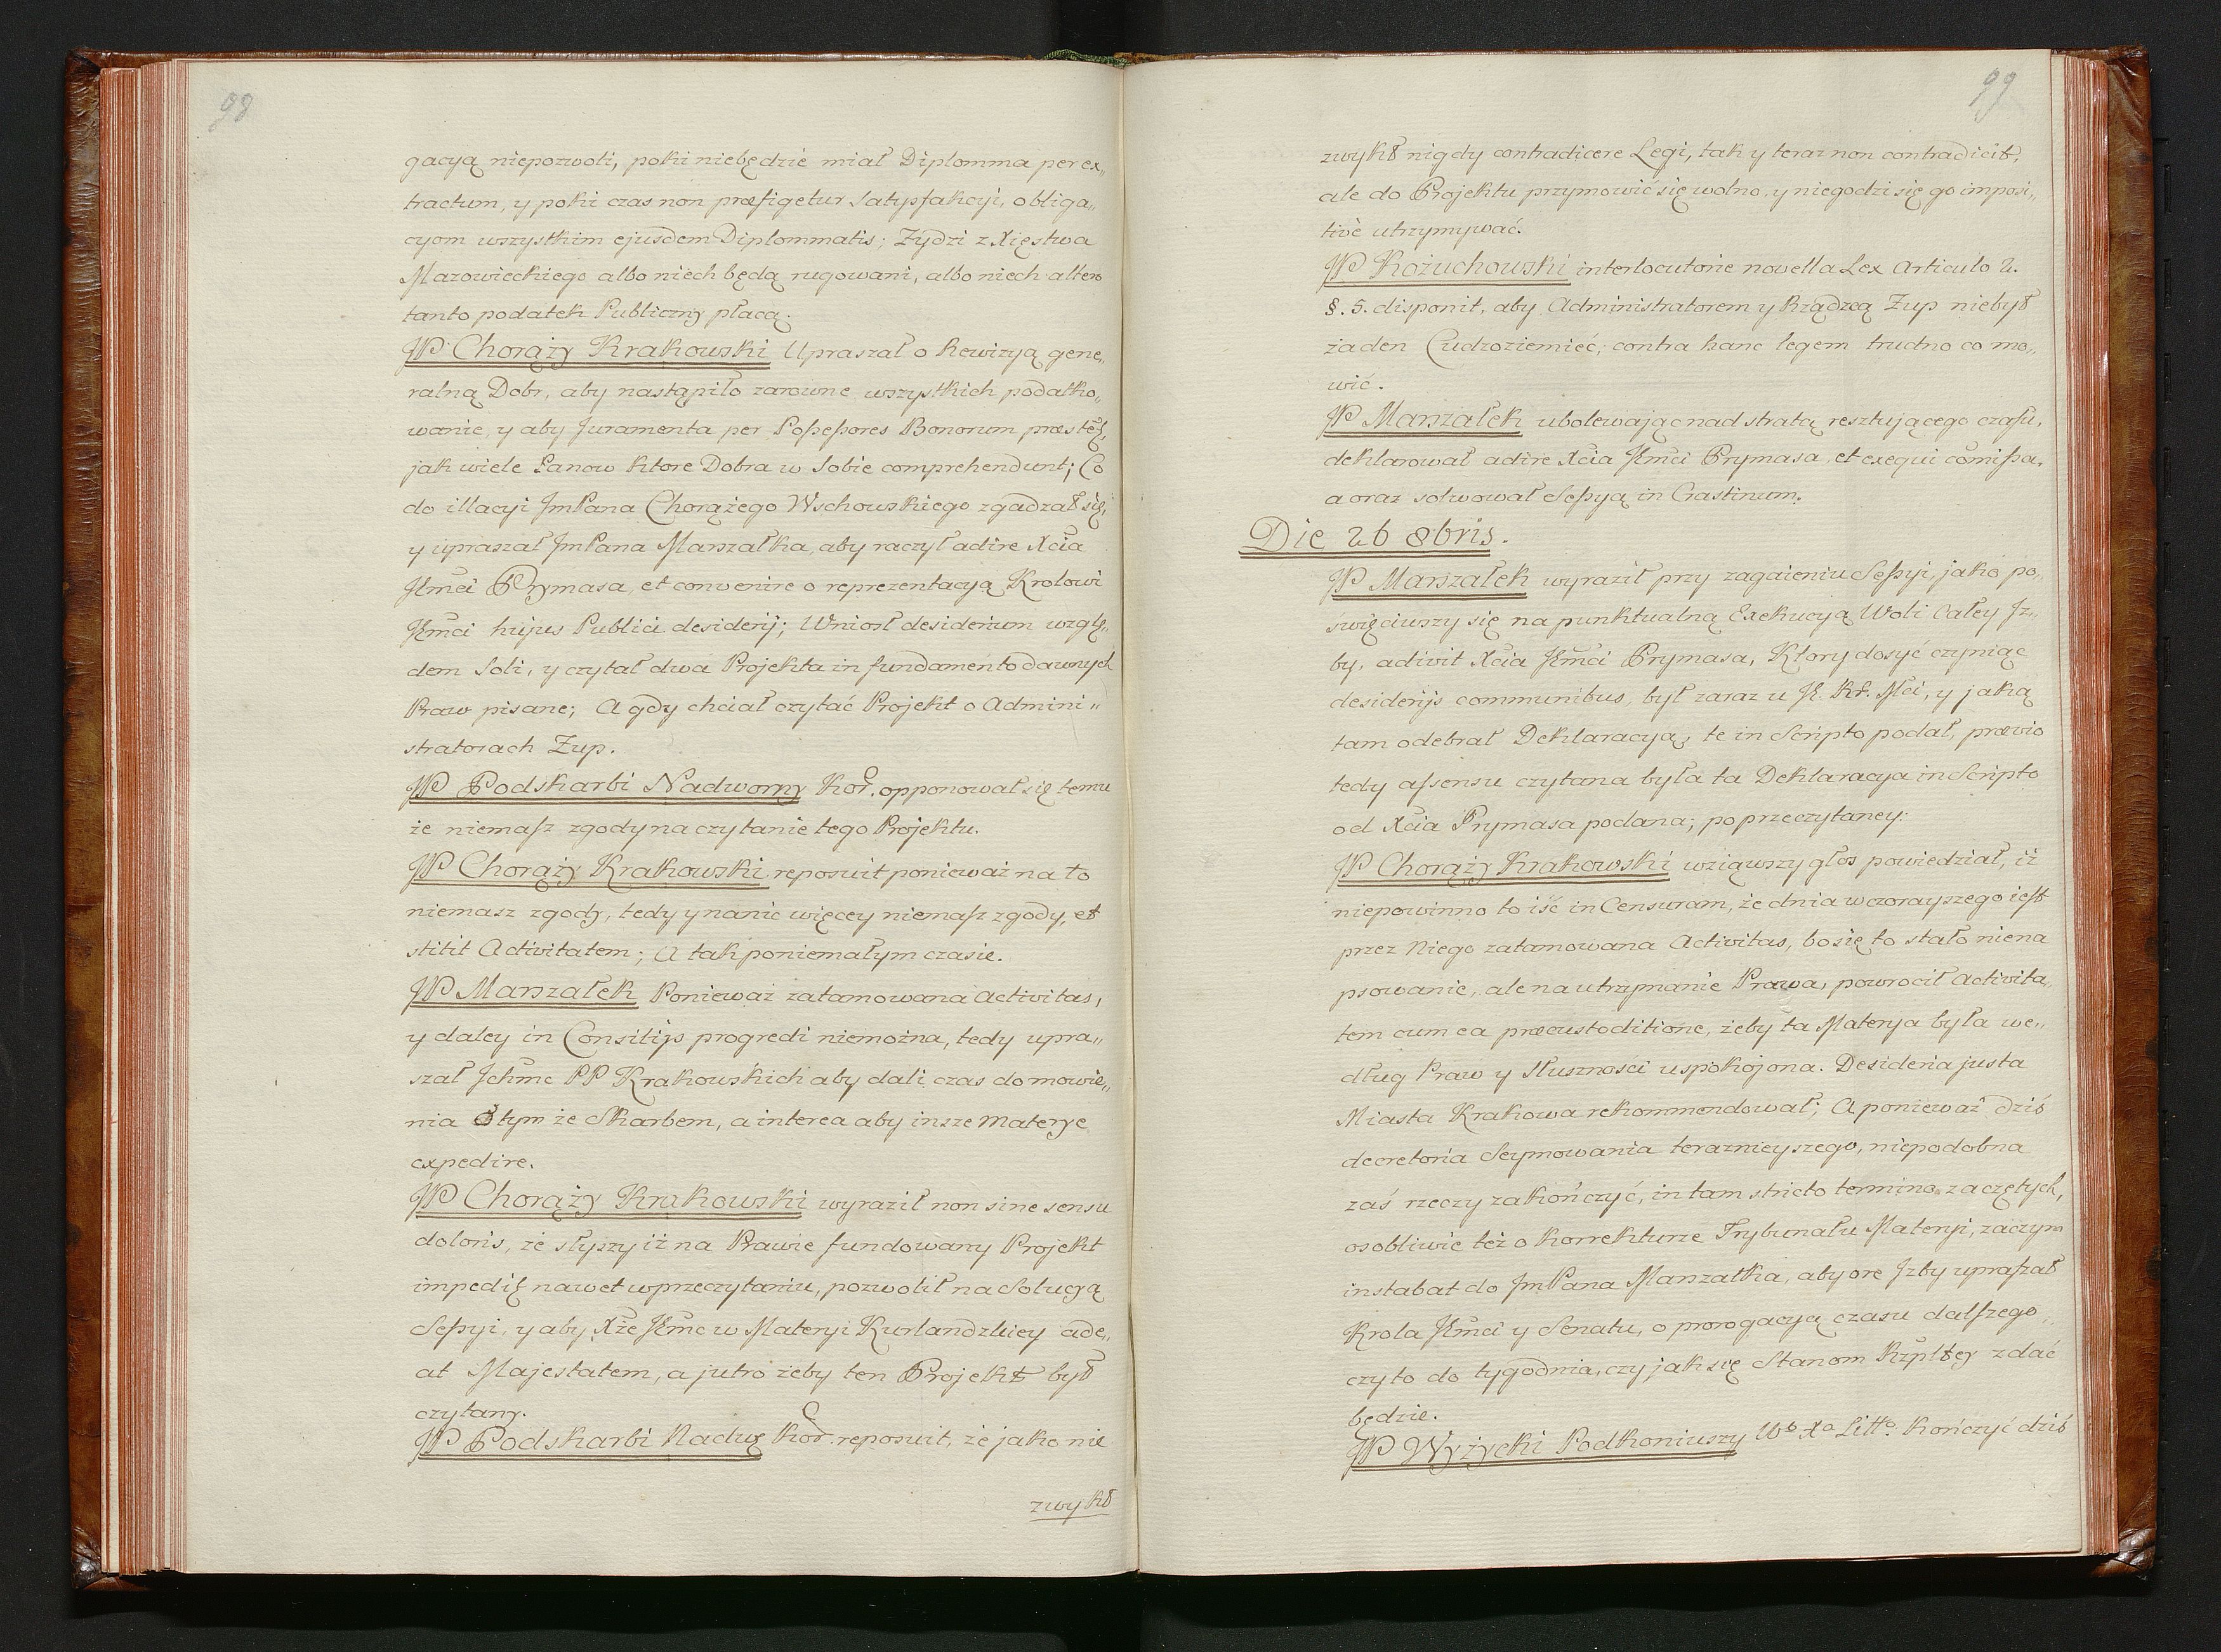 98
gacyą niepozwoli, poki niebędzie miał Diplomma per ex„
tractum, y poki czas non præfigetur Satysfakcyi, obliga„
cyom wszystkim ejusdem Diplommatis; Żydzi z Xięstwa
Mazowieckiego albo niech będą rugowani, albo niech altero
tanto podatek Publiczny płacą.
JP Chorąży Krakowski Upraszał o Rewizyą gene„
ralną Dobr, aby nastąpiło zarowne wszystkich podatko„
wanie, y aby Juramenta per Possessores Bonorum præstet,
jak wiele Panow ktore Dobra w Sobie comprehendunt; Co
do illacyi JmPana Chorążego Wschowskiego zgadzał się,
y upraszał JmPana Marszałka, aby raczył adire Xcia
Jmci Prymasa, et convenire o reprezentacyą Krolowi
Jmci hujus Publici desiderij; Wniosł desiderium wzglę„
dem Soli, y czytał dwa Projekta in fundamento dawnych
Praw pisane; A gdy chciał czytać Projekt o Admini„
stratorach Zup.
JP Podskarbi Nadworny Kor. opponował się temu
że niemasz zgody na czytanie tego Projektu.
JP Chorąży Krakowski reposuit ponieważ na to
niemasz zgody, tedy y nanic więcey niemasz zgody, et
stitit Activitatem; A tak poniemałym czasie.
JP Marszałek Ponieważ zatamowana Activitas,
y daley in Consilijs progredi niemożna, tedy upra„
szał Jchmc PP Krakowskich aby dali czas do mowie„
nia o tym że Skarbem, a interea aby insze materye
expedire.
JP Chorąży Krakowski wyraził non sine sensu
doloris, że słyszy iż na Prawie fundowany Projekt
impedit nawet wprzeczytaniu, pozwolił na Solucyą
Sessyi, y aby Xże Jmc w Materyi Kurlandzkiey ade„
at Majestatem, a jutro żeby ten Projekt był
czytany.
JP Podskarbi Nadwẹ Kor. reposuit, że jako nie
zwykł
99
zwykł nigdy contradicere Legi, tak y teraz non contradicit,
ale do Projektu przymowić się wolno, y niegodzi się go imposi„
tivè utrzymywać.
JP Kożuchowski interlocutorie novella Lex Articulo 2.
§. 5. disponit, aby Administratorem y Rządzcą Zup niebył
żaden Cudzoziemiec, contra hanc legem trudno co mo„
wić.
JP Marszałek ubolewając nad stratą resztującego czasu,
deklarował adire Xcia Jmci Prymasa, et exequi comissa,
a oraz solwował Sessyą in Crastinum.
Die 26 8bris.
JP Marszałek wyraził przy zagaieniu Sessyi, jako po„
święciwszy się na punktualną Exekucyą Woli Całey Iz„
by, adivit Xcia Jmci Prymasa, Ktory dosyć czyniąc
desiderijs communibus, był zaraz u J. Kr. Mci, y jaką
tam odebrał Deklaracyą, te in Scripto podał, prævio
tedy assensu czytana była ta Deklaracya in Scripto
od Xcia Prymasa podana; po przeczytaney:
JP Chorąży Krakowski wziąwszy głos powiedział, iż
niepowinno to iść in Censuram, że dnia wczorayszego iest
przez Niego zatamowana Activitas, bo się to stało niena
psowanie, ale na utrzymanie Prawa, powrocił Activita„
tem cum ea præcustoditione, żeby ta Materya była we„
dług Praw y Słuszności uspokojona. Desideria justa
Miasta Krakowa rekommendował; A ponieważ dziś
decretoria Seymowania teraznieyszego, niepodobna
zaś rzeczy zakończyć, in tam stricto termino zaczętych,
osobliwie też o Korrekturze Trybunału Materyi, zaczym
instabat do JmPana Marszałka, aby ore Izby upraszał
Krola Jmci y Senatu, o prorogacyą czasu dalszego„
czy to do tygodnia, czy jak się Stanom Rzpltey zdać
będzie.
JP Wyżycki Podkoniuszy Wo Xa Litto: Kończyć dziś